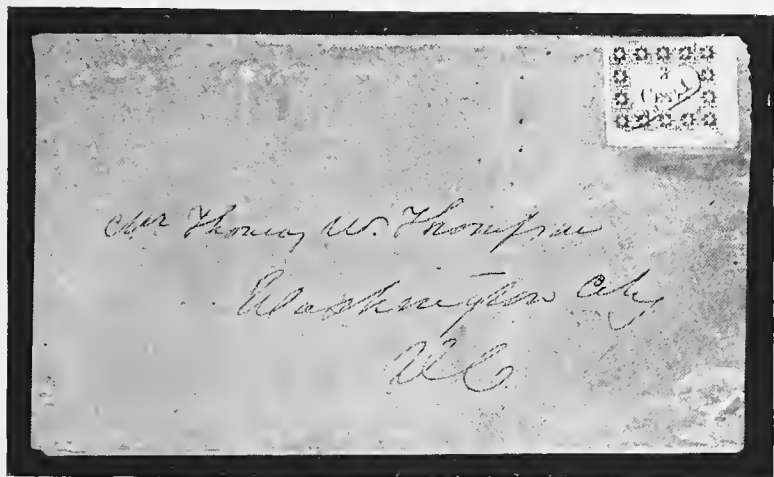 Mr Thomas W. Thompson
Washington City
D C